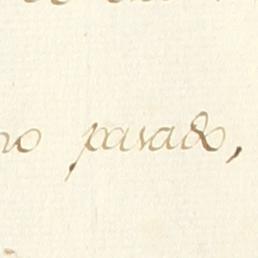 no pasado,